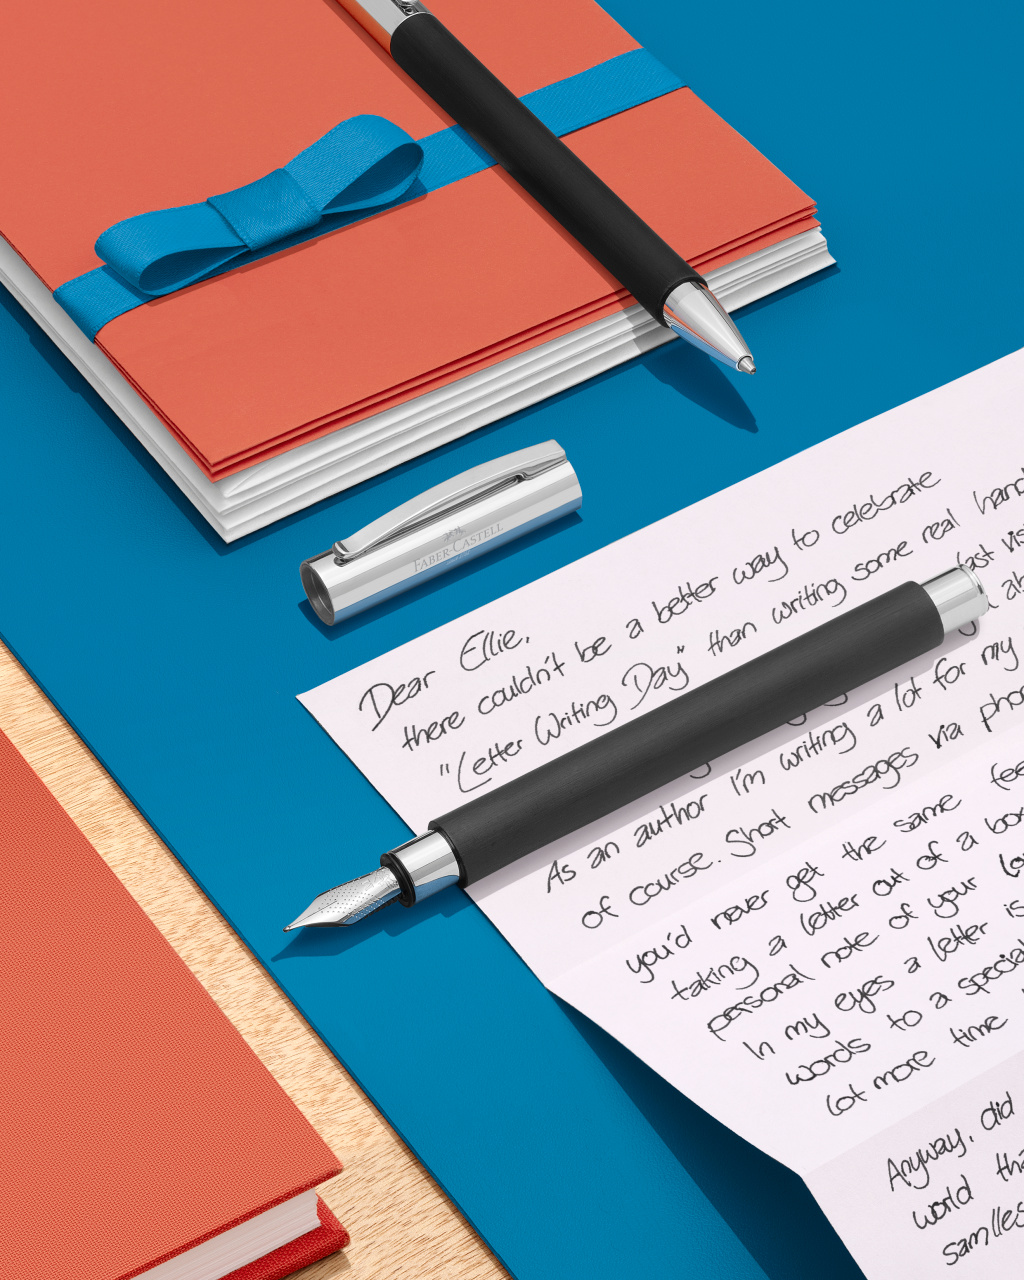 FABER-CASTELL
Dear Ellie,
there couldn't be a better way to celebrate
"Letter Writing Day" than writing some real hand
fast vis
As an author I'm writing a lot for my
of course. Short messages via pho
you'd never get the same fee
taking a letter out of a bo
personal note of your lo
In my eyes a letter is
words to a special
lot more time
Anyway, did
world tha
samlles